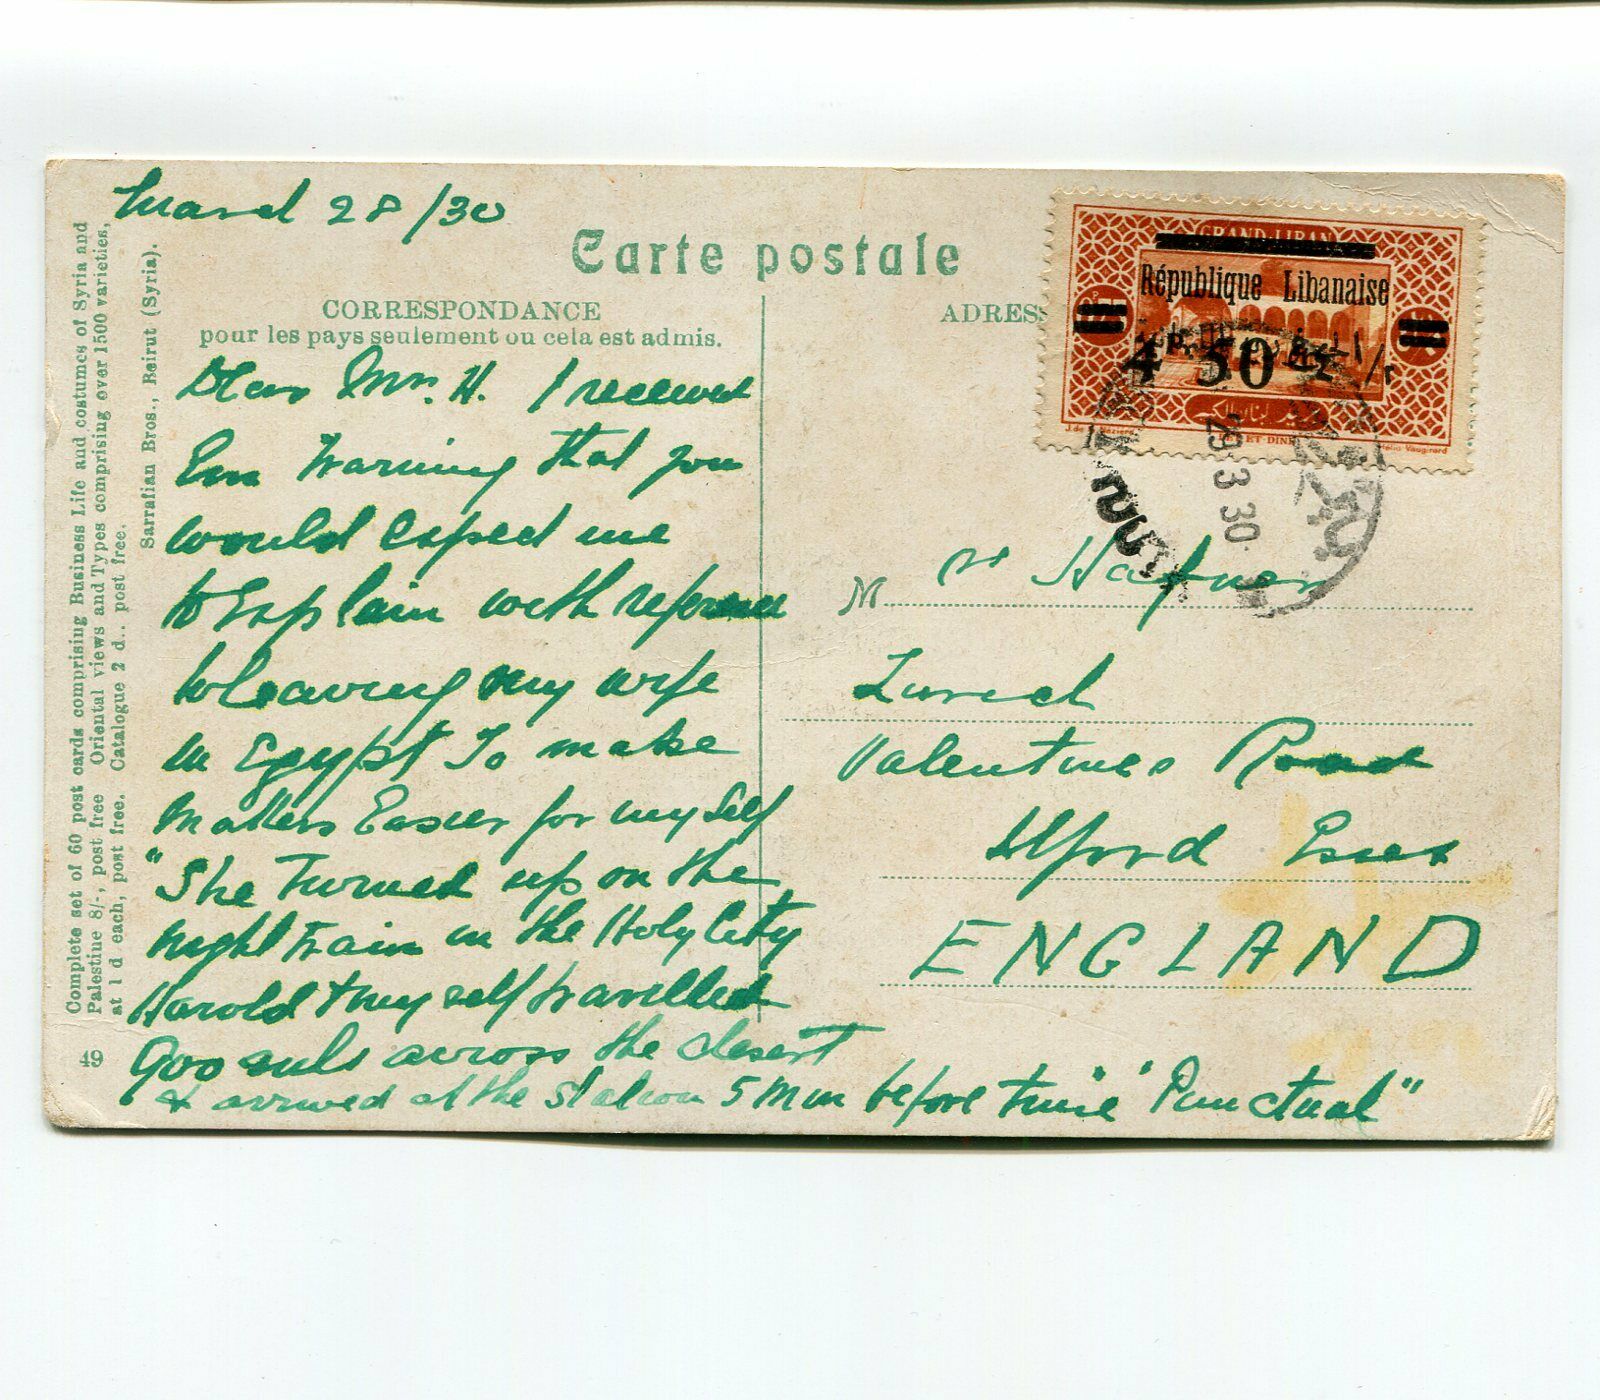 March 28/30
Carte postale
CORRESPONDANCE
pour les pays seulement ou cela est admis.
ADRESS
Dear Mr. H. I received
warning that you
would expect me
to Explain with reference
to leaving my wife
in Egypt To make
matters Easier for my Self
"She Turned up on the
night train in the Holy City
Harold & my self travelled
900 mls across the desert
& arrived at the Station 5 Min before time "Punctual"
M r Hafner
Zurich
Valentines Road
Ilford Essex
ENGLAND
GRAND LIBAN
République Libanaise
4 P. 50
29 3 30
Complete set of 60 post cards comprising Business Life and costumes of Syria and
Palestine 8/-, post free Oriental views and Types comprising over 1500 varieties,
at 1 d each, post free. Catalogue 2 d., post free.
Sarrafian Bros., Beirut (Syria).
49